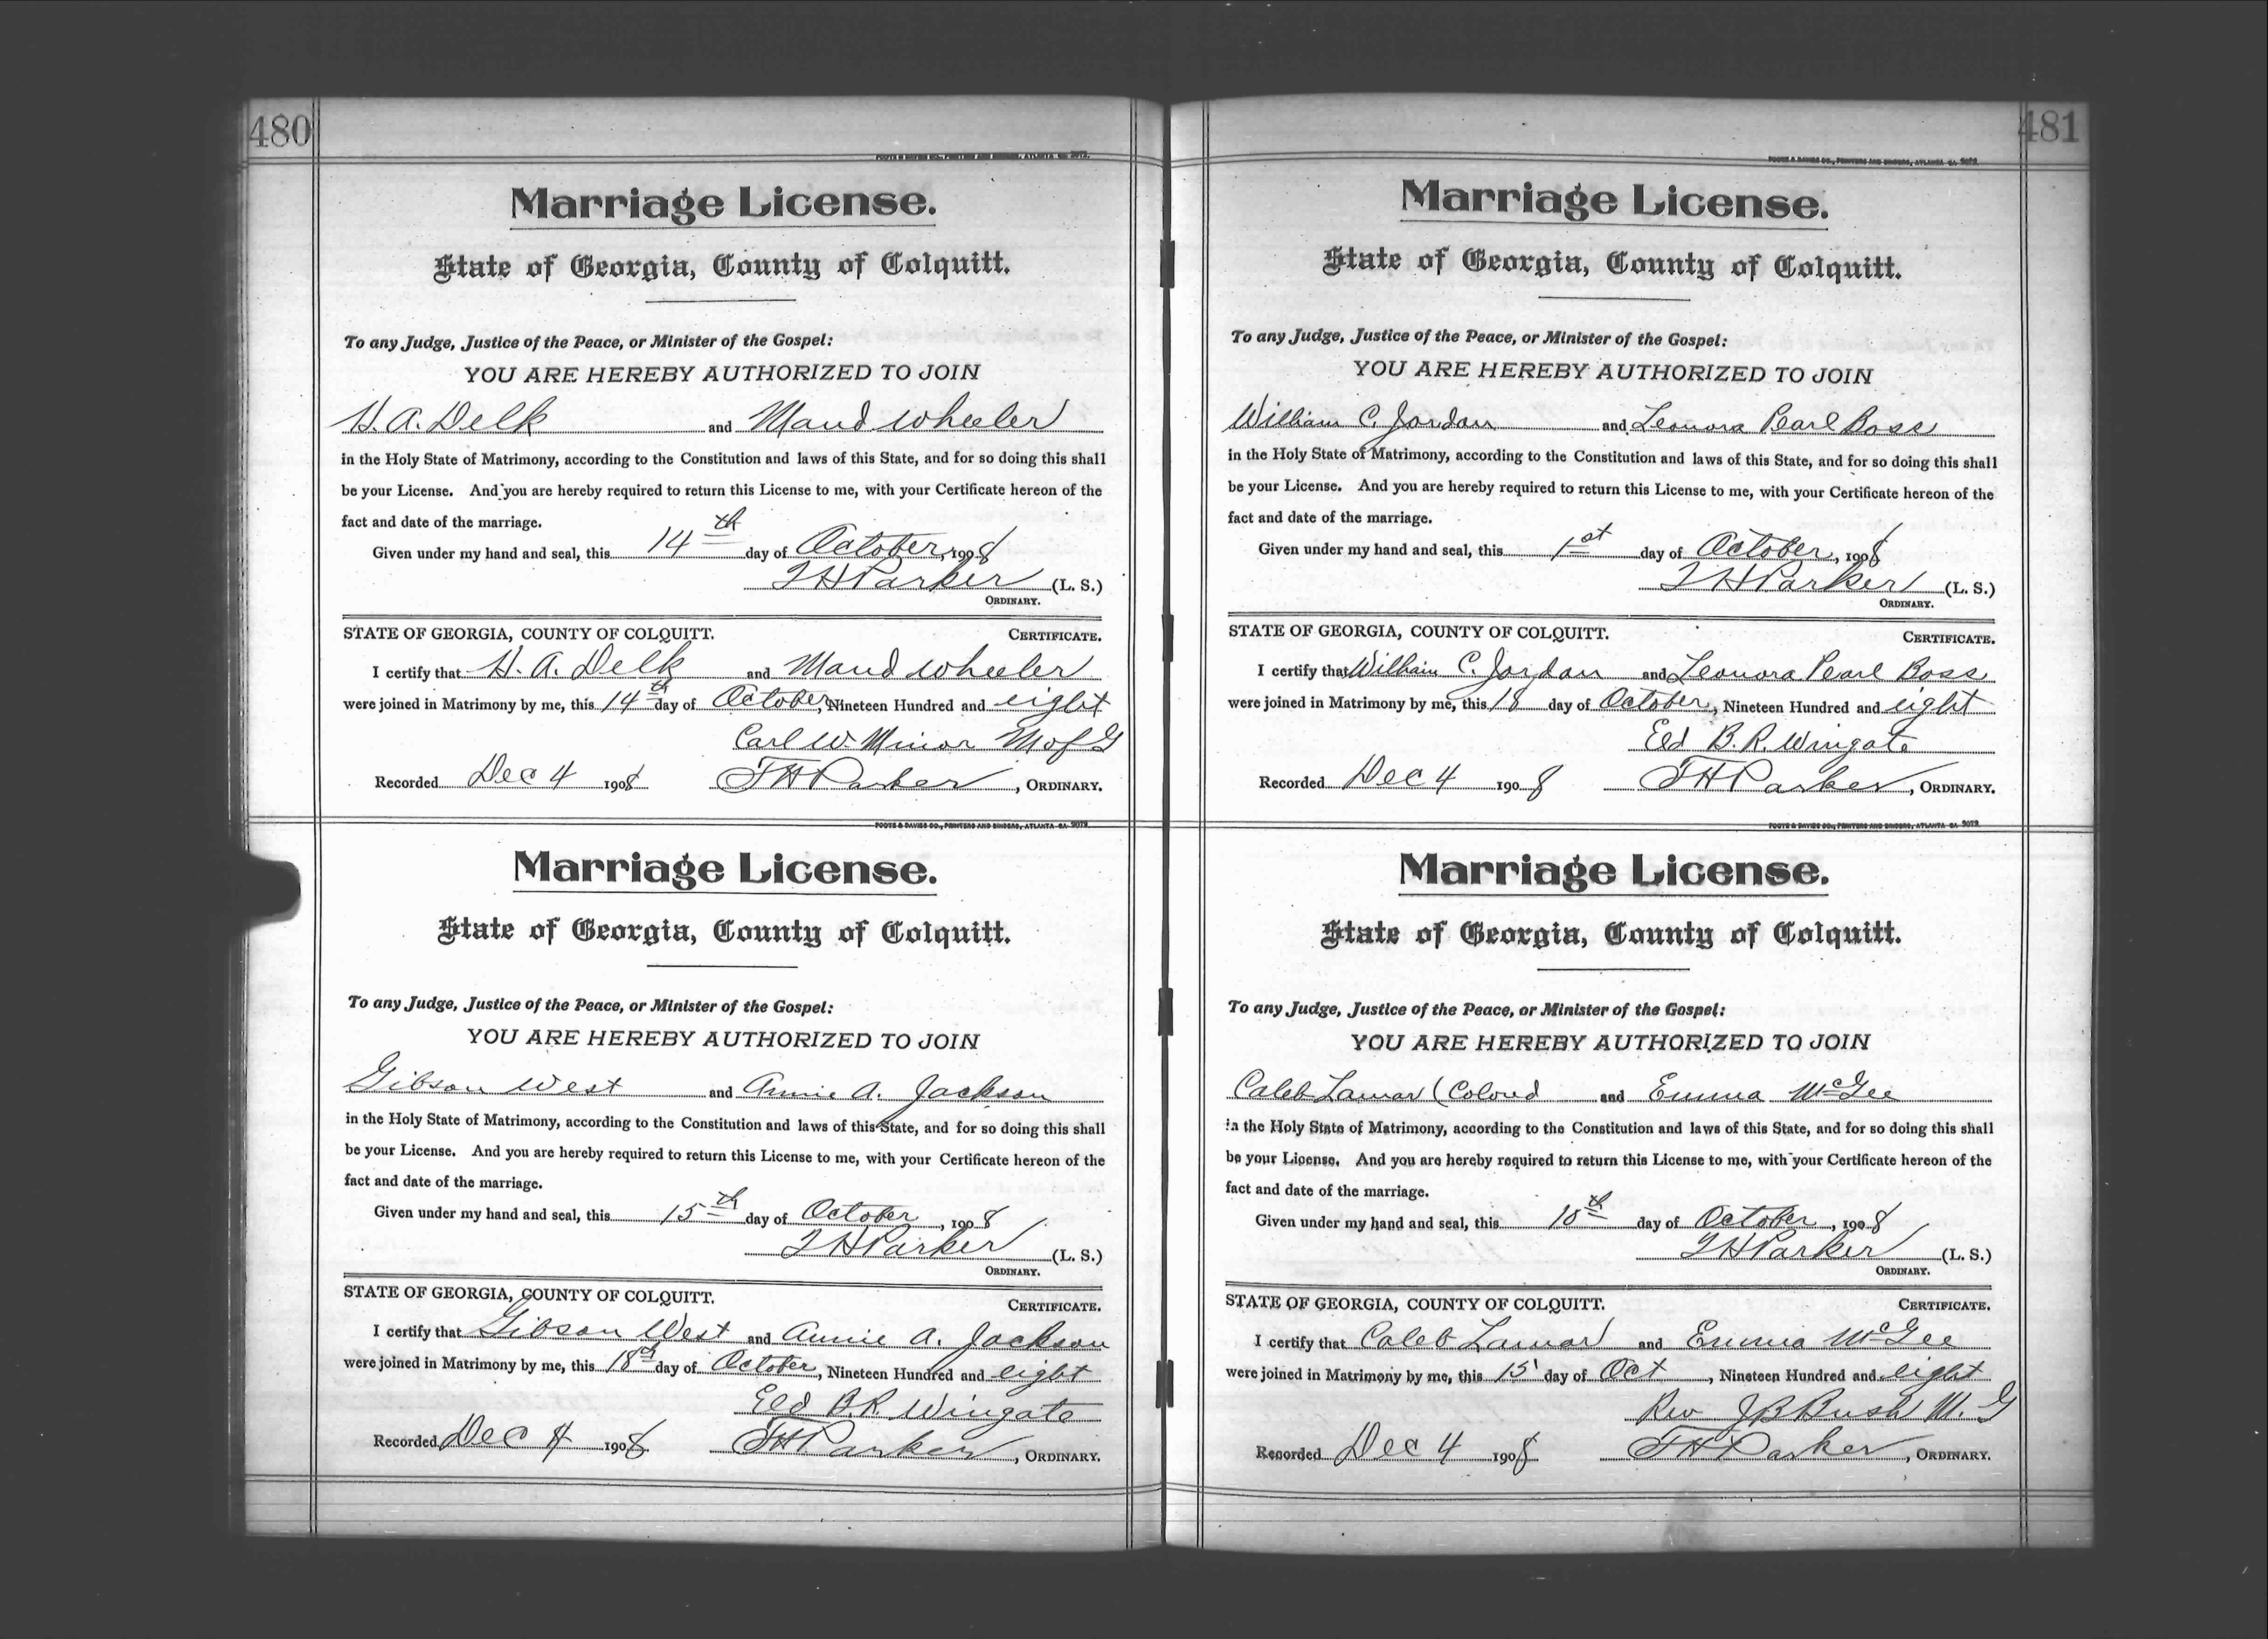 480
FOOTE & DAVIES CO., PRINTERS AND BINDERS, ATLANTA GA. 9072.
Marriage License.
State of Georgia, County of Colquitt.
To any Judge, Justice of the Peace, or Minister of the Gospel:
YOU ARE HEREBY AUTHORIZED TO JOIN
H. A. Delk and Maud Wheeler
in the Holy State of Matrimony, according to the Constitution and laws of this State, and for so doing this shall
be your License. And you are hereby required to return this License to me, with your Certificate hereon of the
fact and date of the marriage.
Given under my hand and seal, this 14th day of October, 1908
T H Parker (L. S.)
ORDINARY.
STATE OF GEORGIA, COUNTY OF COLQUITT. CERTIFICATE.
I certify that H. A. Delk and Maud Wheeler
were joined in Matrimony by me, this 14th day of October, Nineteen Hundred and eight
Carl W. Minor M of G
Recorded Dec 4 1908 T H Parker, ORDINARY.
FOOTE & DAVIES CO., PRINTERS AND BINDERS, ATLANTA GA. 9072.
Marriage License.
State of Georgia, County of Colquitt.
To any Judge, Justice of the Peace, or Minister of the Gospel:
YOU ARE HEREBY AUTHORIZED TO JOIN
Gibson West and Annie A. Jackson
in the Holy State of Matrimony, according to the Constitution and laws of this State, and for so doing this shall
be your License. And you are hereby required to return this License to me, with your Certificate hereon of the
fact and date of the marriage.
Given under my hand and seal, this 15th day of October, 1908
T H Parker (L. S.)
ORDINARY.
STATE OF GEORGIA, COUNTY OF COLQUITT. CERTIFICATE.
I certify that Gibson West and Annie A. Jackson
were joined in Matrimony by me, this 18th day of October, Nineteen Hundred and eight
Eld B. R. Wingate
Recorded Dec 4 1908 T H Parker, ORDINARY.
481
FOOTE & DAVIES CO., PRINTERS AND BINDERS, ATLANTA GA. 9072.
Marriage License.
State of Georgia, County of Colquitt.
To any Judge, Justice of the Peace, or Minister of the Gospel:
YOU ARE HEREBY AUTHORIZED TO JOIN
William C. Jordan and Leonora Pearl Boss
in the Holy State of Matrimony, according to the Constitution and laws of this State, and for so doing this shall
be your License. And you are hereby required to return this License to me, with your Certificate hereon of the
fact and date of the marriage.
Given under my hand and seal, this 1st day of October, 1908
T H Parker (L. S.)
ORDINARY.
STATE OF GEORGIA, COUNTY OF COLQUITT. CERTIFICATE.
I certify that William C. Jordan and Leonora Pearl Boss
were joined in Matrimony by me, this 18 day of October, Nineteen Hundred and eight
Eld B. R. Wingate
Recorded Dec 4 1908 T H Parker, ORDINARY.
FOOTE & DAVIES CO., PRINTERS AND BINDERS, ATLANTA GA. 9072.
Marriage License.
State of Georgia, County of Colquitt.
To any Judge, Justice of the Peace, or Minister of the Gospel:
YOU ARE HEREBY AUTHORIZED TO JOIN
Caleb Lamar (Colord and Emma McGee
in the Holy State of Matrimony, according to the Constitution and laws of this State, and for so doing this shall
be your License. And you are hereby required to return this License to me, with your Certificate hereon of the
fact and date of the marriage.
Given under my hand and seal, this 10th day of October, 1908
T H Parker (L. S.)
ORDINARY.
STATE OF GEORGIA, COUNTY OF COLQUITT. CERTIFICATE.
I certify that Caleb Lamar and Emma McGee
were joined in Matrimony by me, this 15 day of Oct, Nineteen Hundred and eight
Rev J B Bush M. G
Recorded Dec 4 1908 T H Parker, ORDINARY.